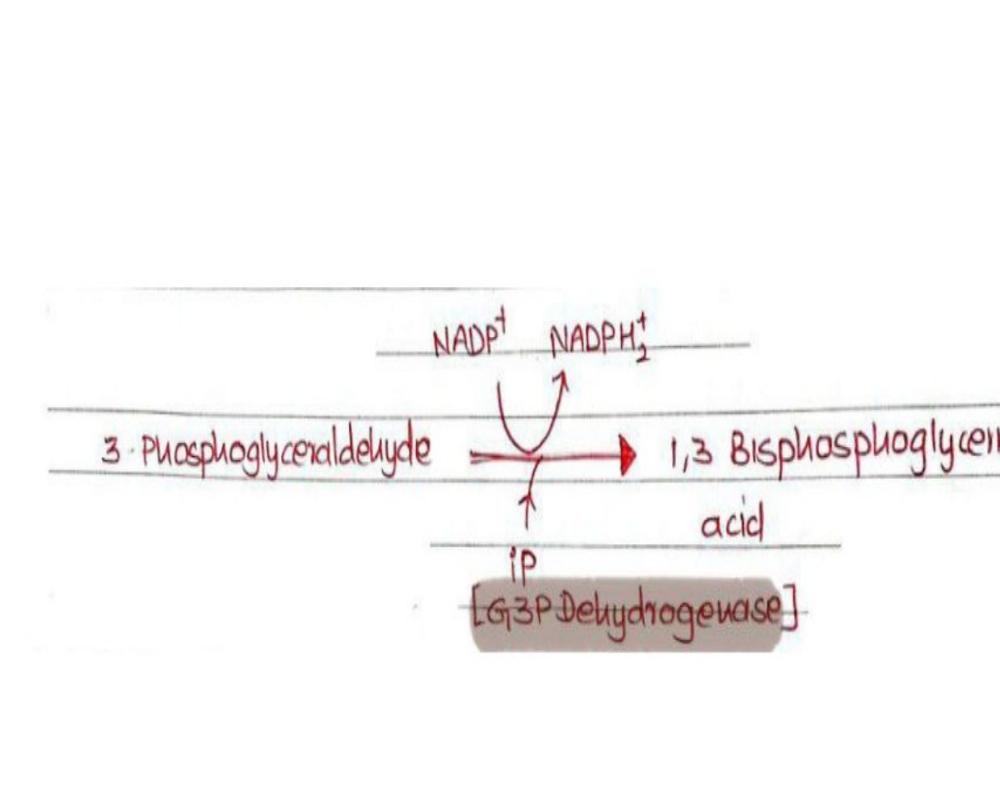 NADP⁺ NADPH₂⁺
3-Phosphoglyceraldehyde 1,3 Bisphosphoglycer
acid
iP
[G3P Dehydrogenase]